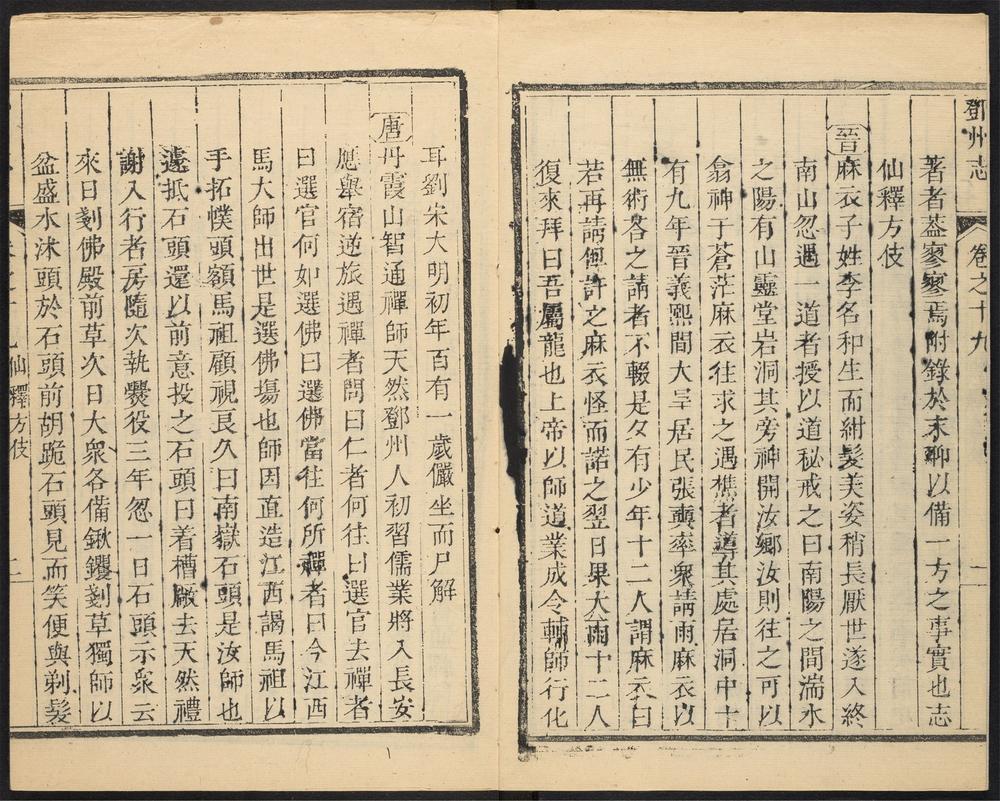 鄧州志
卷之十九
一
著者葢寥寥焉附錄於末聊以備一方之事實也志
仙釋方伎
晉麻衣子姓李名和生而紺髮美姿稍長厭世遂入終
南山忽遇一道者授以道秘戒之曰南陽之間湍水
之陽有山靈堂岩洞其旁神開汝鄉汝則往之可以
翕神于蒼茫麻衣往求之遇樵者導其處居洞中十
有九年晉義熙間大旱居民張奭率衆請雨麻衣以
無術咎之請者不輟是夕有少年十二人謂麻衣曰
若再請俱許之麻衣怪而諾之翌日果大雨十二人
復來拜曰吾屬龍也上帝以師道業成令輔師行化
耳劉宋大明初年百有一歲儼坐而尸解
唐丹霞山智通禪師天然鄧州人初習儒業將入長安
應舉宿逆旅遇禪者問曰仁者何往曰選官去禪者
曰選官何如選佛曰選佛當往何所禪者曰今江西
馬大師出世是選佛塲也師因直造江西謁馬祖以
手拓幞頭額馬祖顧視良久曰南嶽石頭是汝師也
遽抵石頭還以前意投之石頭曰着槽厰去天然禮
謝入行者房隨次執爨役三年忽一日石頭示衆云
來日剗佛殿前草次日大衆各備鍬钁剗草獨師以
盆盛水沐頭於石頭前胡跪石頭見而笑便與剃髮
仙釋方伎
二